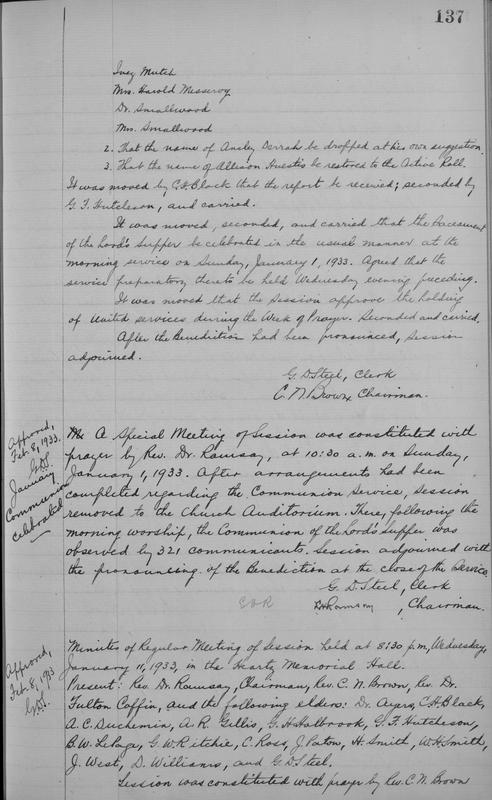 137
Inez Mutch
Mrs. Harold Messervy
Dr. Smallwood
Mrs. Smallwood
2. That the name of Ansley Derrah be dropped at his own suggestion.
3. That the name of Allison Huestis be restored to the Active Roll.
It was moved by C.H. Black that the report be received; seconded by
G. F. Hutcheson, and carried.
It was moved, seconded, and carried that the Sacrament
of the Lord's Supper be celebrated in the usual manner at the
morning service on Sunday, January 1, 1933. Agreed that the
service preparatory thereto be held Wednesday evening preceding.
It was moved that the Session approve the holding
of United services during the Week of Prayer. Seconded and carried.
After the Benediction had been pronounced, Session
adjourned.
G. D. Steel, Clerk
C. N. Brown, Chairman.
Approved,
Feb. 8, 1933.
G.D.S.
January
Communion
celebrated
A Special Meeting of Session was constituted with
prayer by Rev. Dr. Ramsay, at 10:30 a.m. on Sunday,
January 1, 1933. After arrangements had been
completed regarding the Communion Service, Session
removed to the Church Auditorium. There, following the
morning worship, the Communion of the Lord's Supper was
observed by 321 communicants. Session adjourned with
the pronouncing of the Benediction at the close of the Service.
G. D. Steel, Clerk
Ramsay, Chairman.
Approved,
Feb. 8, 1933
G.D.S.
Minutes of Regular Meeting of Session held at 8:30 p.m., Wednesday,
January 11, 1933, in the Heartz Memorial Hall.
Present: Rev. Dr. Ramsay, Chairman, Rev. C. N. Brown, Rev. Dr.
Fulton Coffin, and the following elders: Dr. Ayers, C.H. Black,
A. C. Duchemin, A. R. Gillis, G. H. Holbrook, G. F. Hutcheson,
B. W. LePage, G. W. Ritchie, C. Ross, J. Paton, H. Smith, W. H. Smith,
J. West, D. Williams, and G. D. Steel.
Session was constituted with prayer by Rev. C. N. Brown